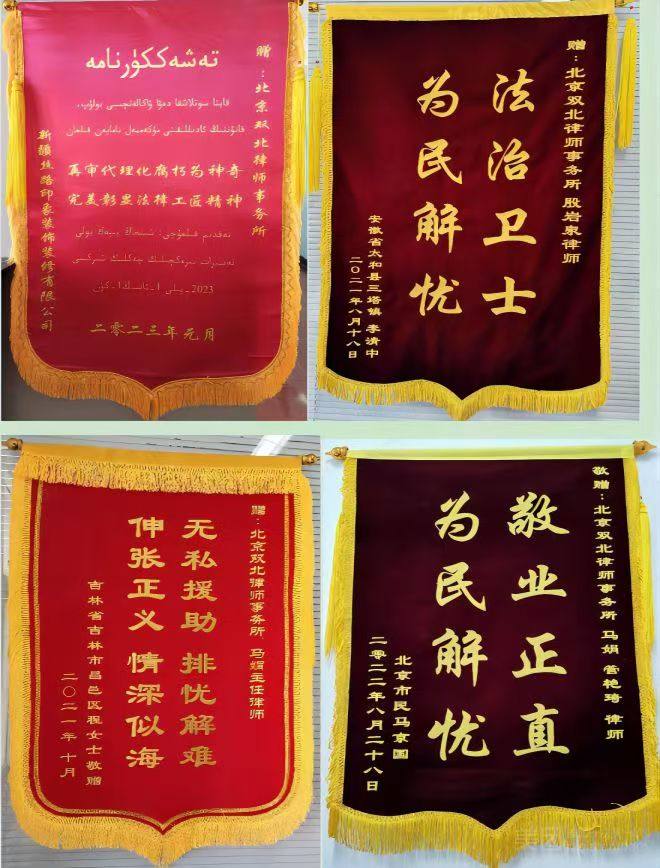 تەشەككۈرنامە
赠：北京双北律师事务所
再审代理化腐朽为神奇
完美彰显法律工匠精神
2023-يىلى 1-ئاينىڭ 1-كۈنى
二零二三年元月
新疆丝路印象装饰装修有限公司
赠：北京双北律师事务所 殷岩泉律师
法治卫士
为民解忧
安徽省太和县三塔镇 李清中
二〇二一年八月十八日
赠：北京双北律师事务所 马娟主任律师
无私援助 排忧解难
伸张正义 情深似海
吉林省吉林市昌邑区程女士敬赠
二〇二一年十月
敬赠：北京双北律师事务所 马娟 营艳琦 律师
敬业正直
为民解忧
北京市民马京国
二零二二年八月二十八日